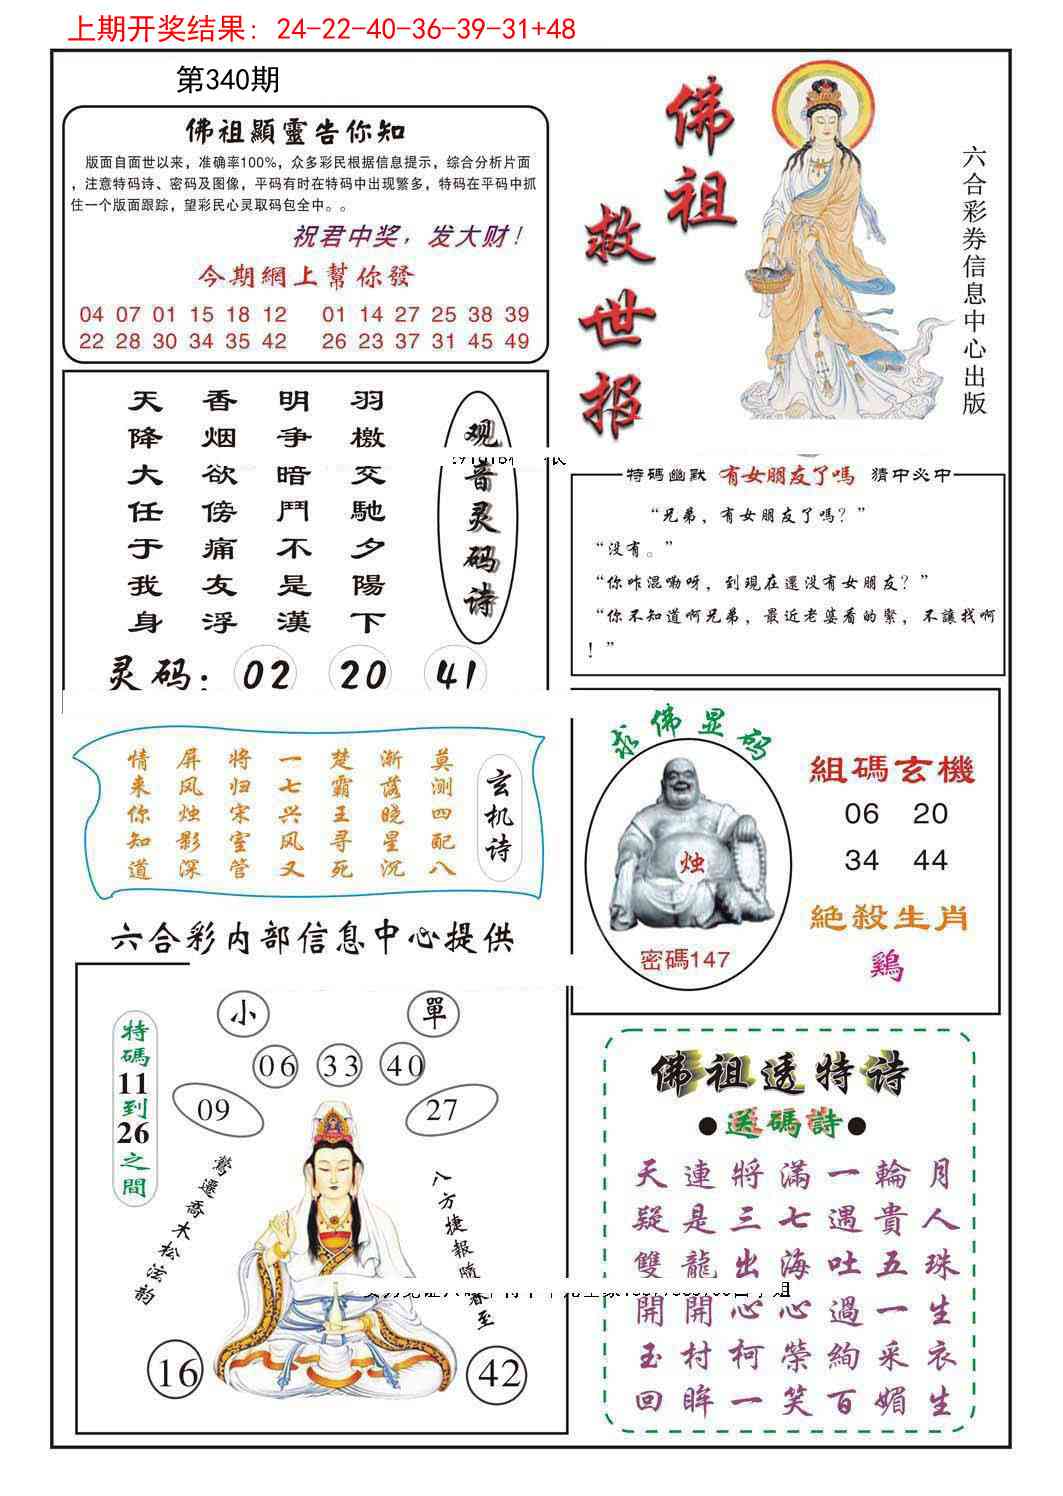 上期开奖结果: 24-22-40-36-39-31+48
第340期
佛祖顯靈告你知
版面自面世以来，准确率100%，众多彩民根据信息提示，综合分析片面
，注意特码诗、密码及图像，平码有时在特码中出现繁多，特码在平码中抓
住一个版面跟踪，望彩民心灵取码包全中。。
祝君中奖，发大财！
今期網上幫你發
04 07 01 15 18 12 01 14 27 25 38 39
22 28 30 34 35 42 26 23 37 31 45 49
佛祖
救世报
六合彩券信息中心出版
羽檄交馳夕陽下
明争暗鬥不是漢
香烟欲傍痛友浮
天降大任于我身
观音灵码诗
灵码：02 20 41
特碼幽默 有女朋友了嗎 猜中必中
“兄弟，有女朋友了嗎？”
“没有。”
“你咋混嘞呀，到現在還没有女朋友？”
“你不知道啊兄弟，最近老婆看的緊，不讓找啊
！”
玄机诗
莫测四配八
渐落晓星沉
楚霸王寻死
一七兴风又
将归宋室管
屏风烛影深
情来你知道
六合彩内部信息中心提供
求佛显码
烛
密碼147
組碼玄機
06 20
34 44
絕殺生肖
鷄
特碼11到26之間
小
單
06 33 40
09
27
鶯遷喬木松泫韵
八方捷報随春至
16
42
佛祖透特诗
●送碼詩●
天連將滿一輪月
疑是三七遇貴人
雙龍出海吐五珠
開開心心過一生
玉村柯榮絢采衣
回眸一笑百媚生